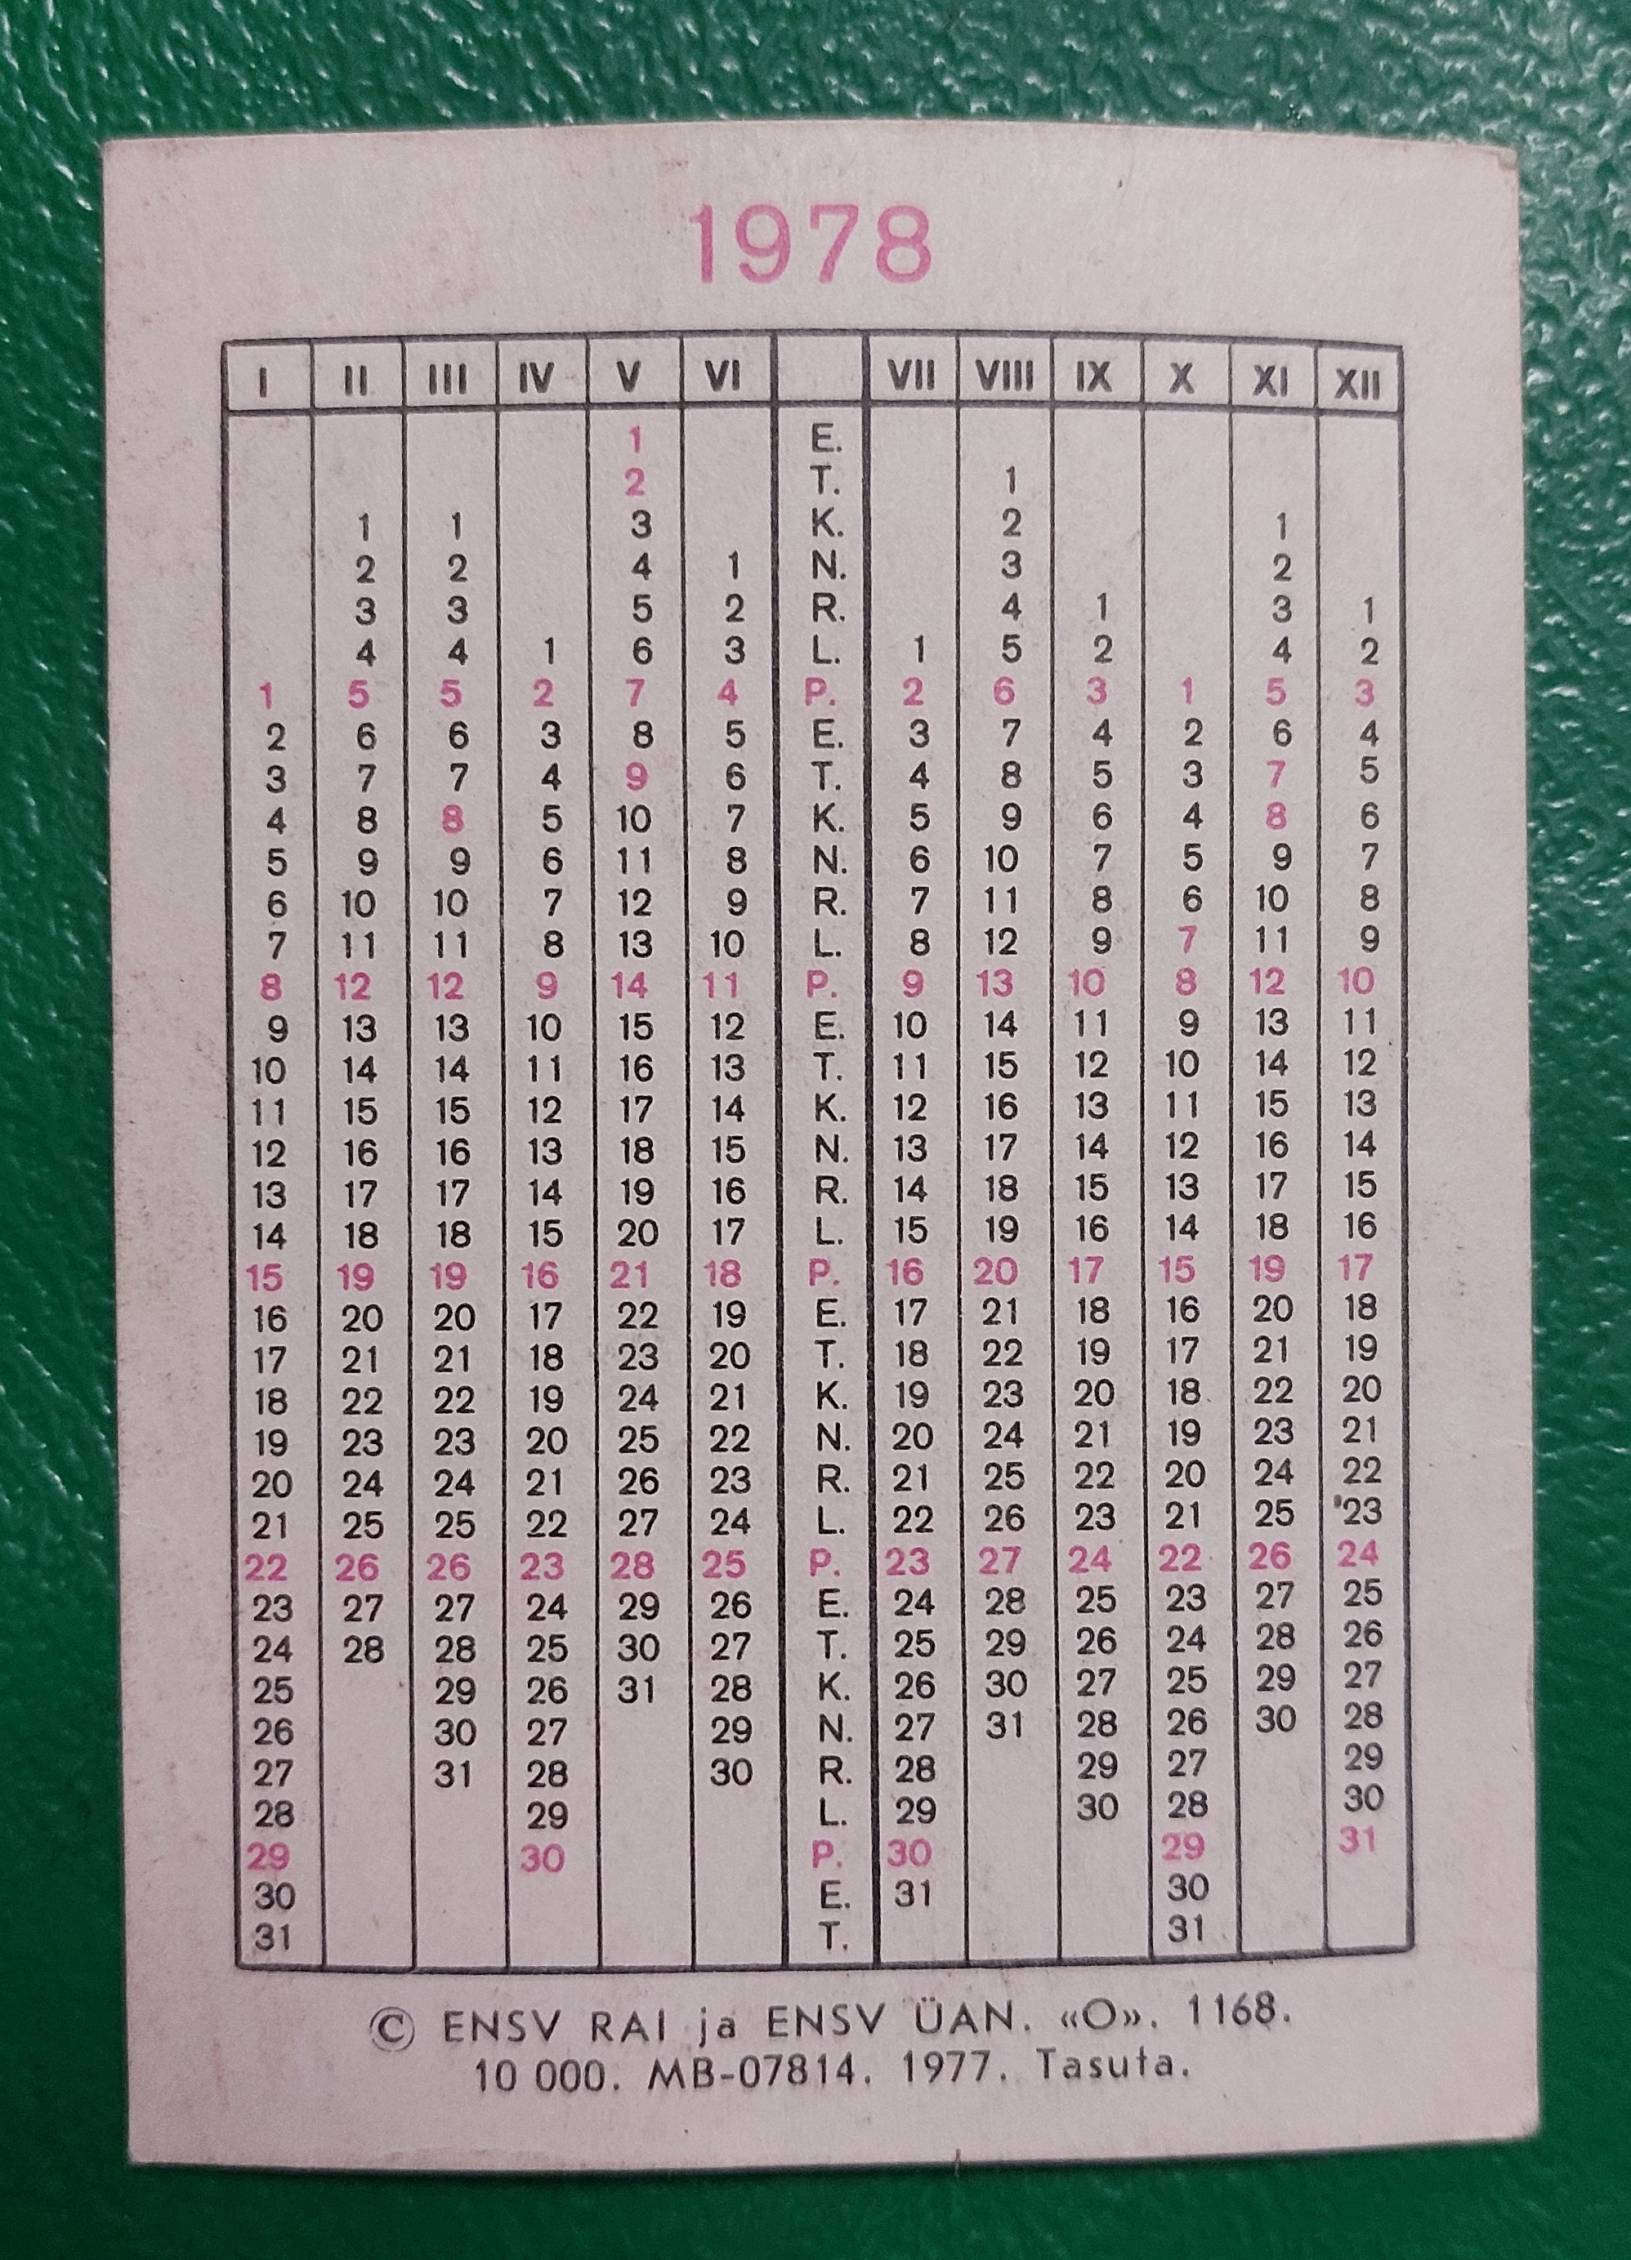 1978
I II III IV V VI VII VIII IX X XI XII
1 E.
2 T. 1
1 1 3 K. 2 1
2 2 4 1 N. 3 2
3 3 5 2 R. 4 1 3 1
4 4 1 6 3 L. 1 5 2 4 2
1 5 5 2 7 4 P. 2 6 3 1 5 3
2 6 6 3 8 5 E. 3 7 4 2 6 4
3 7 7 4 9 6 T. 4 8 5 3 7 5
4 8 8 5 10 7 K. 5 9 6 4 8 6
5 9 9 6 11 8 N. 6 10 7 5 9 7
6 10 10 7 12 9 R. 7 11 8 6 10 8
7 11 11 8 13 10 L. 8 12 9 7 11 9
8 12 12 9 14 11 P. 9 13 10 8 12 10
9 13 13 10 15 12 E. 10 14 11 9 13 11
10 14 14 11 16 13 T. 11 15 12 10 14 12
11 15 15 12 17 14 K. 12 16 13 11 15 13
12 16 16 13 18 15 N. 13 17 14 12 16 14
13 17 17 14 19 16 R. 14 18 15 13 17 15
14 18 18 15 20 17 L. 15 19 16 14 18 16
15 19 19 16 21 18 P. 16 20 17 15 19 17
16 20 20 17 22 19 E. 17 21 18 16 20 18
17 21 21 18 23 20 T. 18 22 19 17 21 19
18 22 22 19 24 21 K. 19 23 20 18 22 20
19 23 23 20 25 22 N. 20 24 21 19 23 21
20 24 24 21 26 23 R. 21 25 22 20 24 22
21 25 25 22 27 24 L. 22 26 23 21 25 23
22 26 26 23 28 25 P. 23 27 24 22 26 24
23 27 27 24 29 26 E. 24 28 25 23 27 25
24 28 28 25 30 27 T. 25 29 26 24 28 26
25 29 26 31 28 K. 26 30 27 25 29 27
26 30 27 29 N. 27 31 28 26 30 28
27 31 28 30 R. 28 29 27 29
28 29 L. 29 30 28 30
29 30 P. 30 29 31
30 E. 31 30
31 T. 31
© ENSV RAI ja ENSV ÜAN. «O». 1168.
10 000. MB-07814. 1977. Tasuta.